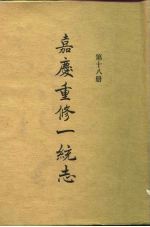 第十八册
嘉慶重修一統志